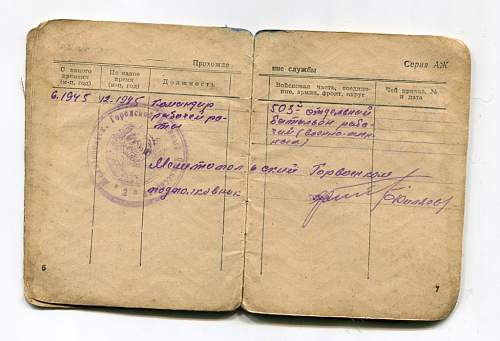 Прохожде
ние службы
Серия АЖ
С какого времени (м-ц, год)
По какое время (м-ц, год)
Должность
Войсковая часть, соединение, армия, фронт, округ
Чей приказ, № и дата
6.1945 12.1945 Командир
рабочей ро-
ты
503й отдельный
батальон рабо-
чий (военно-плен-
ных)
Мелитопольский Горвоенком
подполковник
6
7